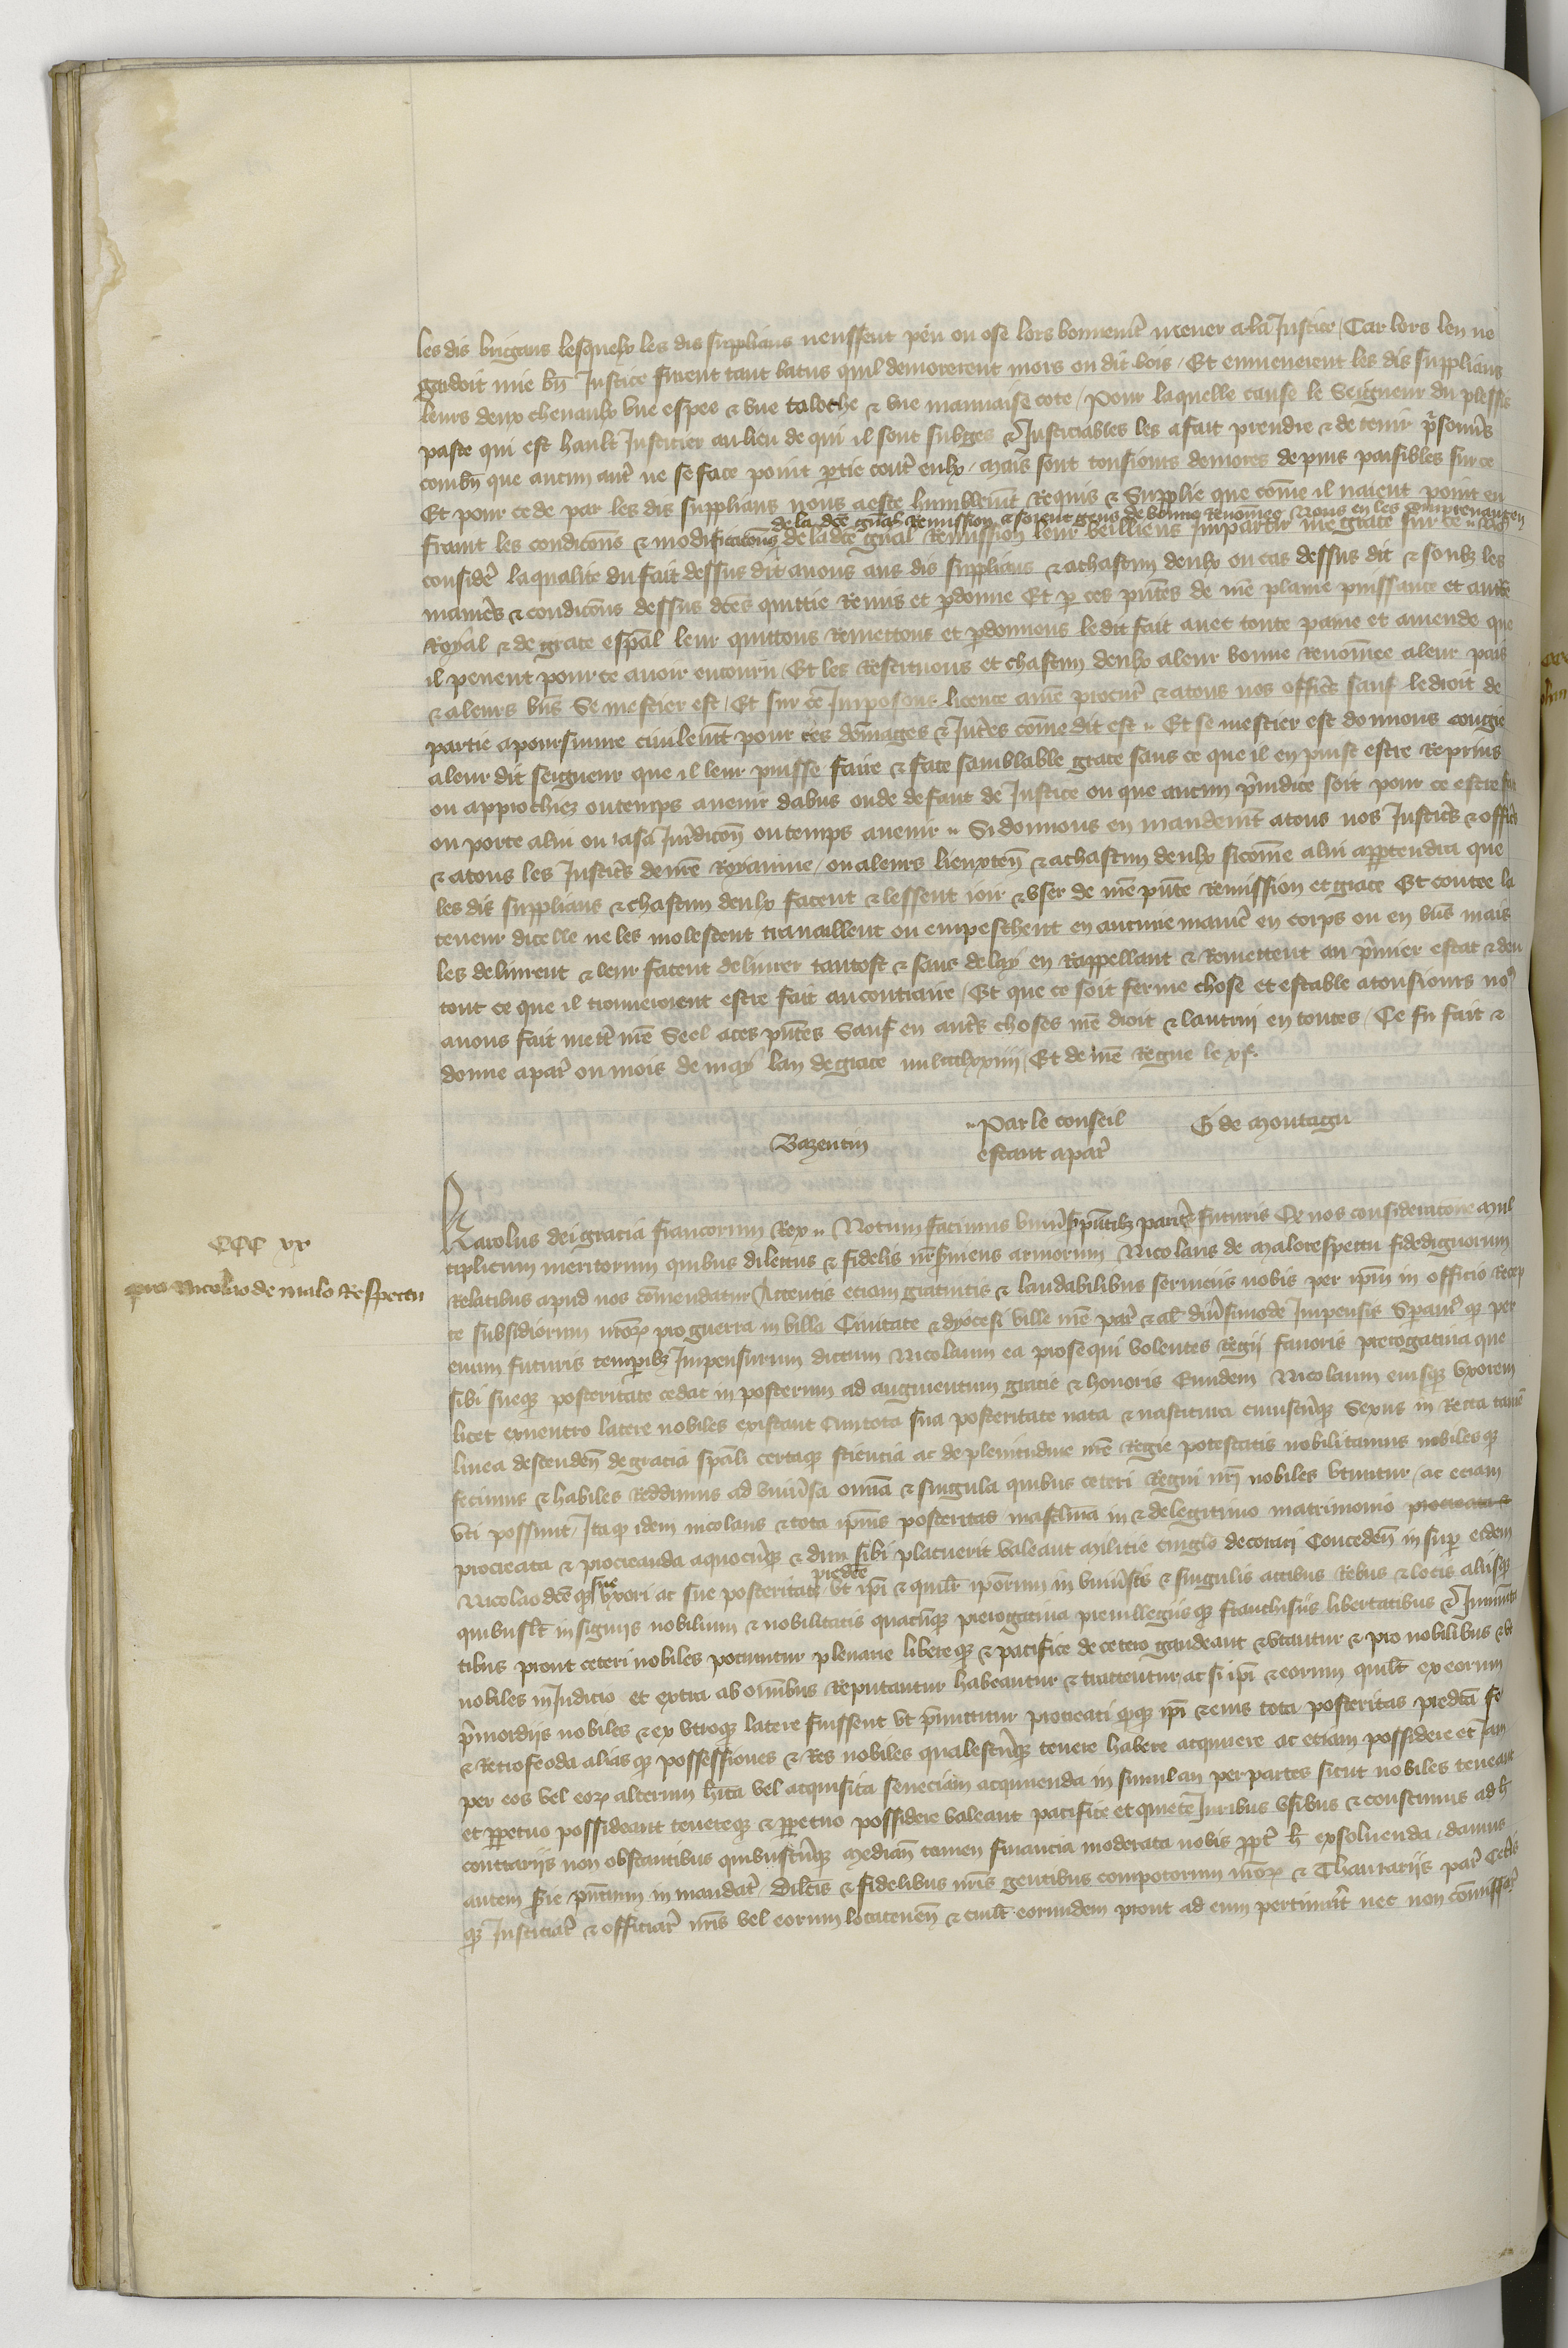 les dis brigans lesquelx les dis supplians neussent peu ou ose lors bonnemt mener a la Justice / Car lors len ne
gardoit mie bn Justice furent tant batus quil demorerent mors ou dit bois / Et enmenerent les dis supplians
leurs deux chevaulx une espee & une taloche & une mauvaise cote / Pour laquelle cause le Seigneur du plessis
paste qui est hault Justicier au lieu de qui il sont subges & Justiciables les a fait prendre & detenir prisonrs
combn que aucun autre ne se face point ptie contre eulx / mais sont tousiours demores depuis paisibles sur ce
Et pour ce de par les dis supplians nous a este humblemt Requis & Supplie que come il naient point en
de la dce gnal Remission & soient gens de bonne Renomee Nous en les
fraint les condicons & modificacons de la dce gnal Remission leur veilliens Impartir nre grace sur ce
consider la qualite du fait dessus dit avons aus dis supplians & a chascun deulx ou cas dessus dit & soubz les
manieres & condicons dessus dces quittie Remis et pdonne Et p ces pntes de nre plaine puissance et aucte
Royal & de grace espal leur quittons Remettons et pdonnons le dit fait avec toute paine et amende que
il pevent pour ce avoir encouru / Et les Restituons et chascun deulx a leur bonne Renomee a leur pais
& a leurs bns Se mestier est / Et sur ce Imposons licence a nre procur & a tous nos officrs sauf le droit de
partie a poursuivre civilemt pour ces domages & Intres come dit est Et se mestier est donnons congie
a leur dit seigneur que il leur puisse faire & face samblable grace sans ce que il en puist estre Reprins
ou approchiez ou temps avenir dabus ou de defaut de Justice ou que aucun priudice soit pour ce estre
ou porte a lui ou a sa Juridicon ou temps avenir Si donnons en mandemt a tous nos Justicrs & officrs
& a tous les Justicrs de nre Royaume / ou a leurs lieuxten & a chascun deulx sicome a lui appartendra que
les dis supplians & chascun deulx facent & lessent joir & user de nre pnte Remission et grace Et contre la
teneur dicelle ne les molestent travaillent ou empeschent en aucune manier en corps ou en bns mais
les delivrent & leur facent delivrer tantost & sans delay en Rappellant & Remettent au primier estat & deu
tout ce que il trouveroient estre fait au contraire / Et que ce soit ferme chose et estable a tousiours nos
avons fait mettr nre Seel a ces pntes Sauf en autrs choses nre droit & lautruy en toutes / Ce fu fait &
donne a par ou mois de may lan de grace mil ccclxxiiii / Et de nre Regne le xie.
Bazentin
Par le conseil
estant a par
G de Montagu
Karolus dei gracia francorum Rex Notum facimus univs pntibz pariter & futuris Qd nos consideracione mul
tiplicium meritorum quibus dilectus & fidelis nr serviens armorum Nicolaus de Malorespectu fidedignorum
CCC xx
pro Nicolao de malo Respectu
Relatibus apud nos comendatur Attentis eciam gratuitis & laudabilibus serviciis nobis per ipm in officio Recep
te subsidiorum nrorum pro guerra in villa Civitate & dyocesi ville nre par & al divsimode Impensis Sperantesqz per
eum futuris temporibz Impensurum dictum Nicolaum ea prosequi volentes Regii favoris prerogativa que
sibi sueqz posteritate cedat in posterum ad augmentum gracie & honoris Eundem Nicolaum eiusqz uxorem
licet ex neutro latere nobiles existant Cum tota sua posteritate nata & nascitura cuiuscunqz Sexus in Recta tamen
linea descenden de gracia spali certaqz sciencia ac de plenitudine nre Regie potestatis nobilitamus nobilesqz
fecimus & habiles Reddimus ad univsa omia & singula quibus ceteri Regni nri nobiles utuntur / ac eciam
uti possunt / Itaqz idem nicolaus & tota ipius posteritas masculina in & de legitimo matrimonio procreata &
procreata & procreanda a quocunqz & dum sibi placuerit valeant Milicie cingulo decorari Conceden insuper eidem
predce
Nicolao dceqz sue uxori ac sue posteritate ut ipi & quilt ipsorum in univsis & singulis actibus Rebus & locis aliisqz
quibuslt insigniis nobilium & nobilitatis quacunqz prerogativa previllegiisqz franchisiis libertatibus & Imunita
tibus prout ceteri nobiles potiuntur plenarie libereqz & pacifice de cetero gaudeant & utantur & pro nobilibus & ut
nobiles in Judicio et extra ab omibus Reputantur habeantur & tractentur ac si ipi & eorum quilt ex eorum
primordiis nobiles & ex utroqz latere fuissent ut premittitur procreati Quodqz ipi & eius tota posteritas predca fe
& Retrofeoda aliasqz possessiones & Res nobiles qualescunqz tenere habere acquirere ac etiam possidere et Jam
per eos vel eorum alterum hita vel acquisita seu eciam acquirenda in simul an per partes sicut nobiles teneant
et ppetuo possideant tenereqz & ppetuo possidere valeant pacifice et quiete Juribus usibus & constumis ad h
contrariis non obstantibus quibuscunqz Median tamen financia moderata nobis ppter h exsolvenda / damus
autem Serie pntium in mandatis Dilcis & fidelibus nris gentibus compotorum nrorum & Thaurariis par Cetisqz
qz Justiciar & officiar nris vel eorum locatenen & cuilt eorumdem prout ad eum pertinuit nec non comissar